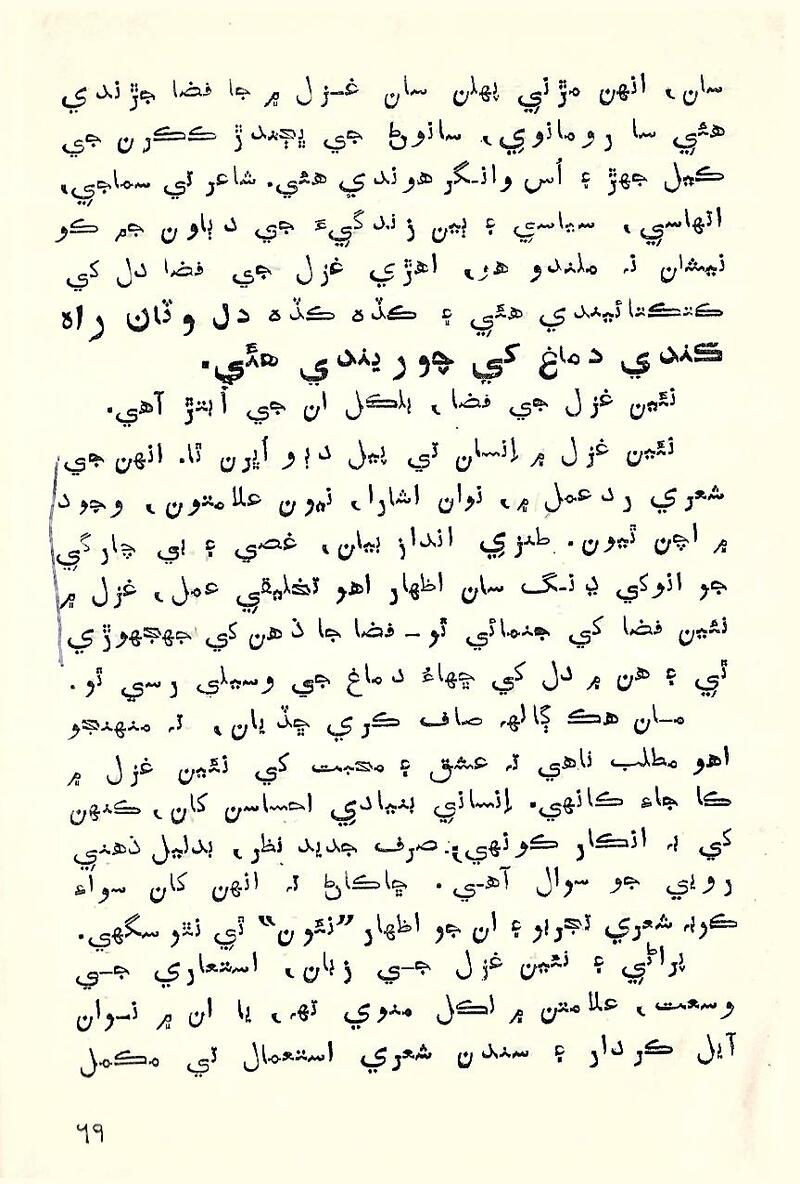 سان، انهن مڙني پهلن سان غـزل ۾ جا فضا جڙندي
هئي سا رومانوي، سانوڻ جي ڀڄندڙ ڪڪرن جي
ڪيل جهڙ ۽ اُس وانـگر هوندي هئي. شاعر تي سماجي،
اتهاسي، سياسي ۽ ٻين زندگيءَ جي دٻاون جو ڪو
نيشان نہ ملندو هو، اهڙي غزل جي فضا دل کي
ڪتڪتائيندي هئي ۽ ڪڏه ڪڏه دل وٽان راه
ڪندي دماغ کي چوريندي هئي.
نئين غزل جي فضا، بلڪل ان جي اُبتڙ آهي.
نئين غزل ۾ اِنسان تي پيل دٻو اُڀرن ٿا. انهن جي
شعري ردعمل ۾، نوان اشارا، نيون علامتون، وجود
۾ اچن ٿيون. طنزي انداز بيان، غصي ۽ بي چارگي
جو انوکي ڍنـگ سان اظهار اهو تخليقي عمل، غزل ۾
نئين فضا کي جنمائي ٿو ـ فضا جا ذهن کي جهنجهوڙي
ٿي ۽ هن ۾ دل کي ڇهاءُ دماغ جي وسيلي رسي ٿو.
مـان هڪ ڳالهہ صاف ڪري ڇڏيان، تہ منهنجو
اهو مطلب ناهي تہ عشق ۽ محبت کي نئين غزل ۾
ڪا جاءِ ڪانهي. اِنساني بنيادي احساسن کان، ڪنهن
کي بہ انڪار ڪونهي، صرف جديد نظر، بدليل ذهني
رويي جو سوال آهـي. ڇاڪاڻ تہ انهن کان سواءِ
ڪوبہ شعري تجربو ۽ ان جو اظهار ”نئون“ ٿي نٿو سگهي.
پراڻي ۽ نئين غزل جـي زبان، استعاري جـي
وسعت، علامتن ۾ لڪل معنوي تهہ، يا ان ۾ نـوان
آيل ڪردار ۽ سندن شعري استعمال تي مڪمل
٦٩